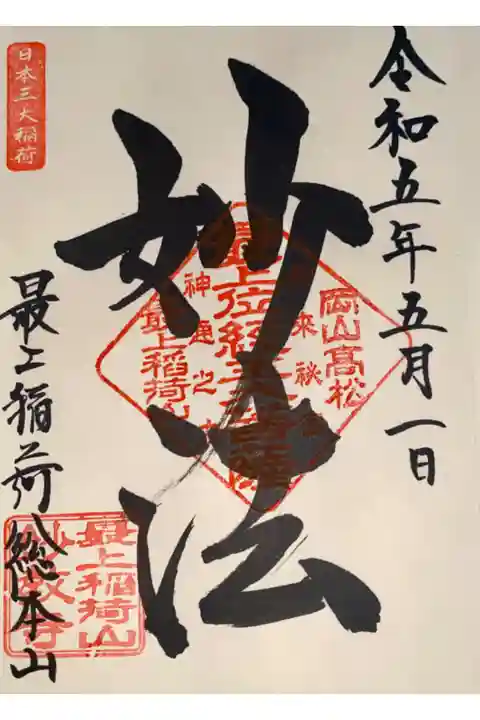 令和五年五月一日
妙法
岡山高松
来秘
最上位経王大菩薩
神通之力
最上稲荷山
日本三大稲荷
最上稲荷総本山
最上稲荷山
妙教寺